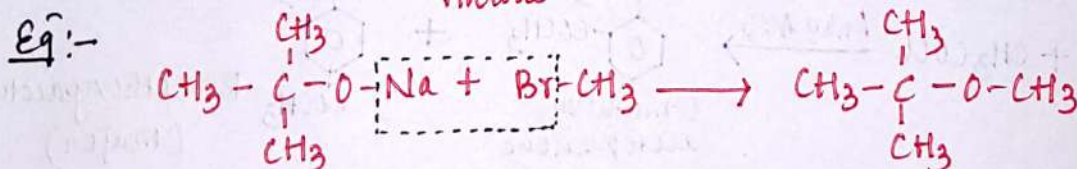 Eg:-
CH3 CH3
CH3 - C - O - Na + Br - CH3 ⟶ CH3 - C - O - CH3
CH3 CH3